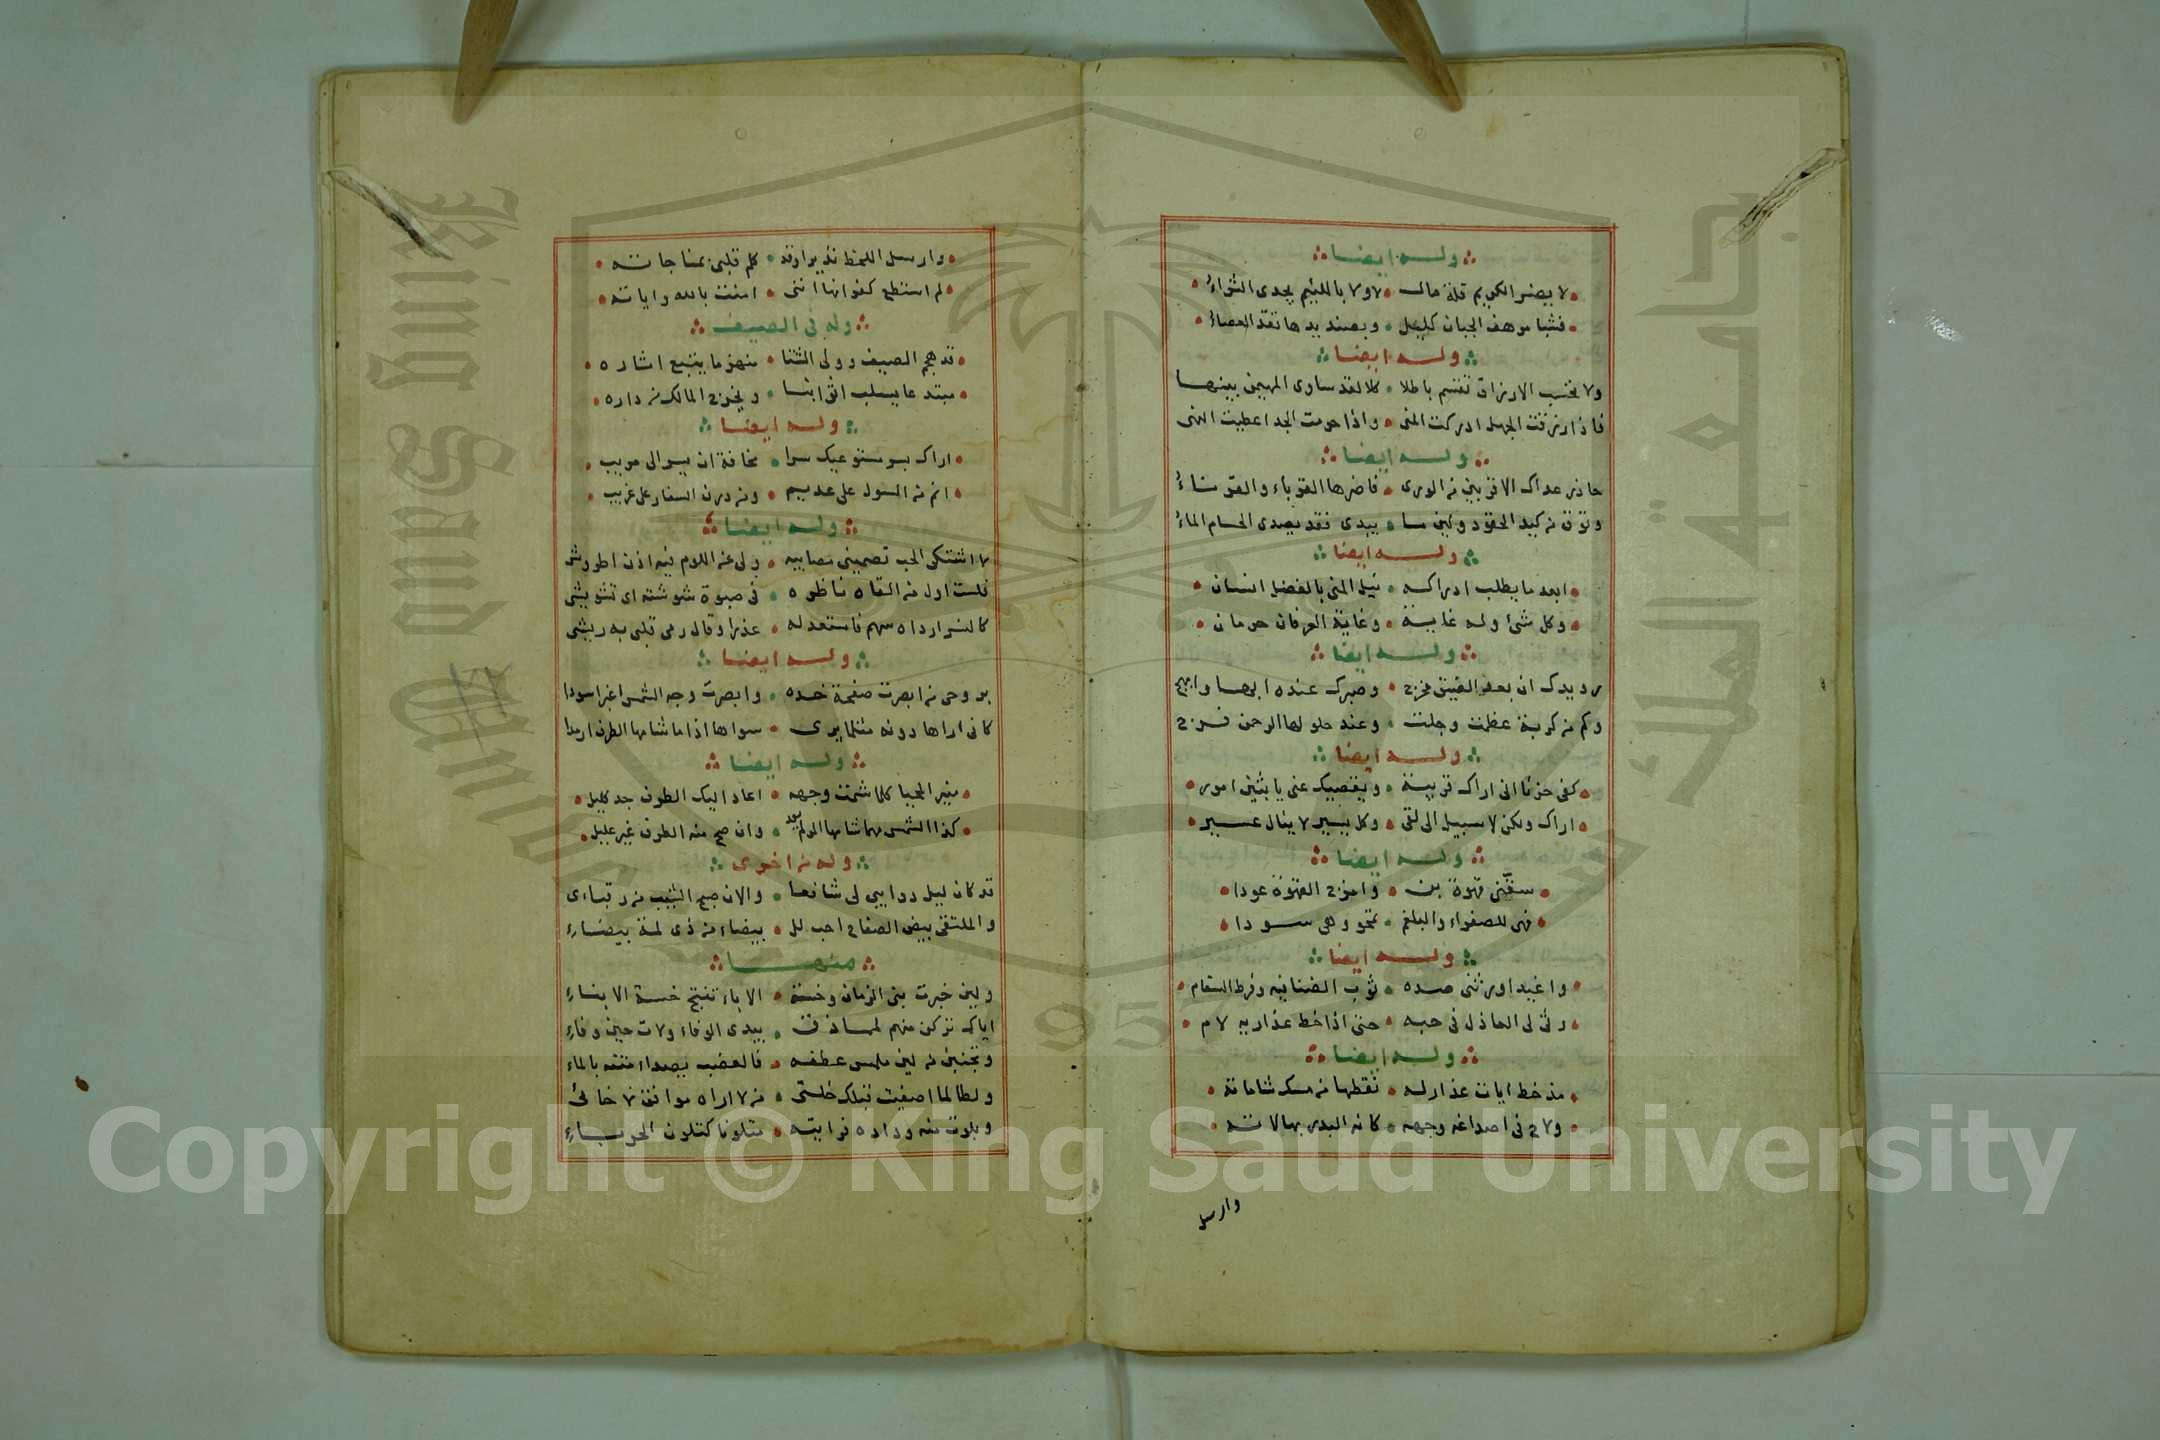 وله ايضا
لا يضر الكريم قلة مال ولا باللئيم يجدى الثراء
فشبا مرهف الجبان كليل وبصنديدها تقد العصاء
وله ايضا
ولا تحسب الارزاق تقسم باطلا كلا لقد ساوى المهيمن بينها
فاذا رزقت الجهل ادركت المنى واذا حرمت الجد اعطيت النهى
وله ايضا
حاذر عداك الاقربين من الورى فاضرها القرباء والقرناء
وتوق من كيد الحقود ولين ما يبدى فقد يصدى الحسام الماء
وله ايضا
ابعد ما يطلب ادراكه نيل المنى بالفضل انسان
وكل شئ وله غاية وغاية العرفان حرمان
وله ايضا
رويدك ان بعد الضيق مخرج وصبرك عنده ابهى وابهج
وكم من كربة عظمت وجلت وعند حلولها الرحمن فرج
وله ايضا
كفى حزنا انى اراك قريبة ويقصيك عنى يا بثين امور
اراك ولكن لا سبيل الى لقى وكل يسير لا ينال عسير
وله ايضا
سقنى قهوة بن وامزج القهوة عودا
فهى للصفراء والبلغم تمحو وهى سودا
وله ايضا
واغيد اورثنى صده ثوب الضنا فيه وفرط السقام
رثى لى العاذل فى حبه حتى اذا خط عذاريه لام
وله ايضا
مذ خط ايات عذار له نقطها من مسك شاماته
ولاح فى اصداغه وجهه كانه البدر بهالاته
وارسل
وارسل اللحظ نذيرا وقد كلم قلبى بمناجاته
لم استطع كفرانها اننى امنت بالله واياته
وله فى الصيف
قد هجم الصيف وولى الشتا منهزما يتبع اثاره
مبتدعا يسلب اثوابنا ويخرج المالك من داره
وله ايضا
اراك بسر مستوعيك سرا مخافة ان يسر الى مريب
انم من السول على عديم ومن درن السفار على غريب
وله ايضا
لا اشتكى الحب تصمينى مصايبه ولى عن اللوم فيه اذن اطروش
فلست اول من القاه ناظره فى صبوة شوشته اى تشويش
كالنسر ارداه سهم فاستعد له عذرا وقال رمى قلبى به ريشى
وله ايضا
بروحى من ابصرت صفحة خده وابصرت وجه الشمس اغبر اسودا
كانى اراها دونه مثلما يرى سواها اذا ما شامها الطرف ارمدا
وله ايضا
منير المحيا كلما شمت وجهه اعاد اليك الطرف جد كليل
كذا الشمس مهما شامها المرء وان صح منه الطرف غير عليل
وله من اخرى
قد كان ليل ذوايبى لى شافعا والان صبح الشيب من رقباءى
والملتقى بيض الصفاح احب لل بيضاء من ذى لمة بيضاء
منها
ولين خبرت بنى الزمان وخسة الاباء تنتج خسة الابناء
اياك تركن منهم لمماذق يبدى الوفاء ولات حين وفاء
وتجنبن من لين ملمس عطفه فالعضب يصداء متنه بالماء
ولطالما اصفيت قبلك خلتى من لا اراه موافق خائى
وبلوت منه وداده فرايته متلونا كتلون الحرباء